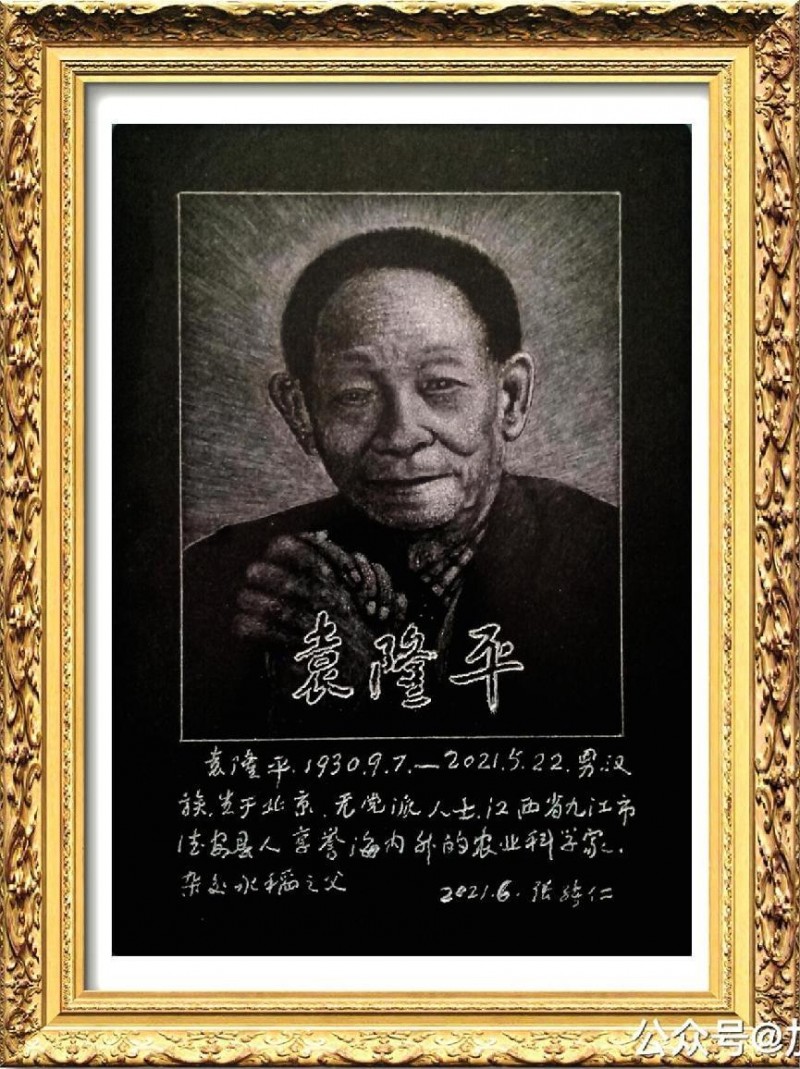 袁隆平
袁隆平.1930.9.7.—2021.5.22.男.汉
族.生于北京.无党派人士.江西省九江市
德安县人享誉海内外的农业科学家..
杂交水稻之父
2021.6.张绮仁
公众号@